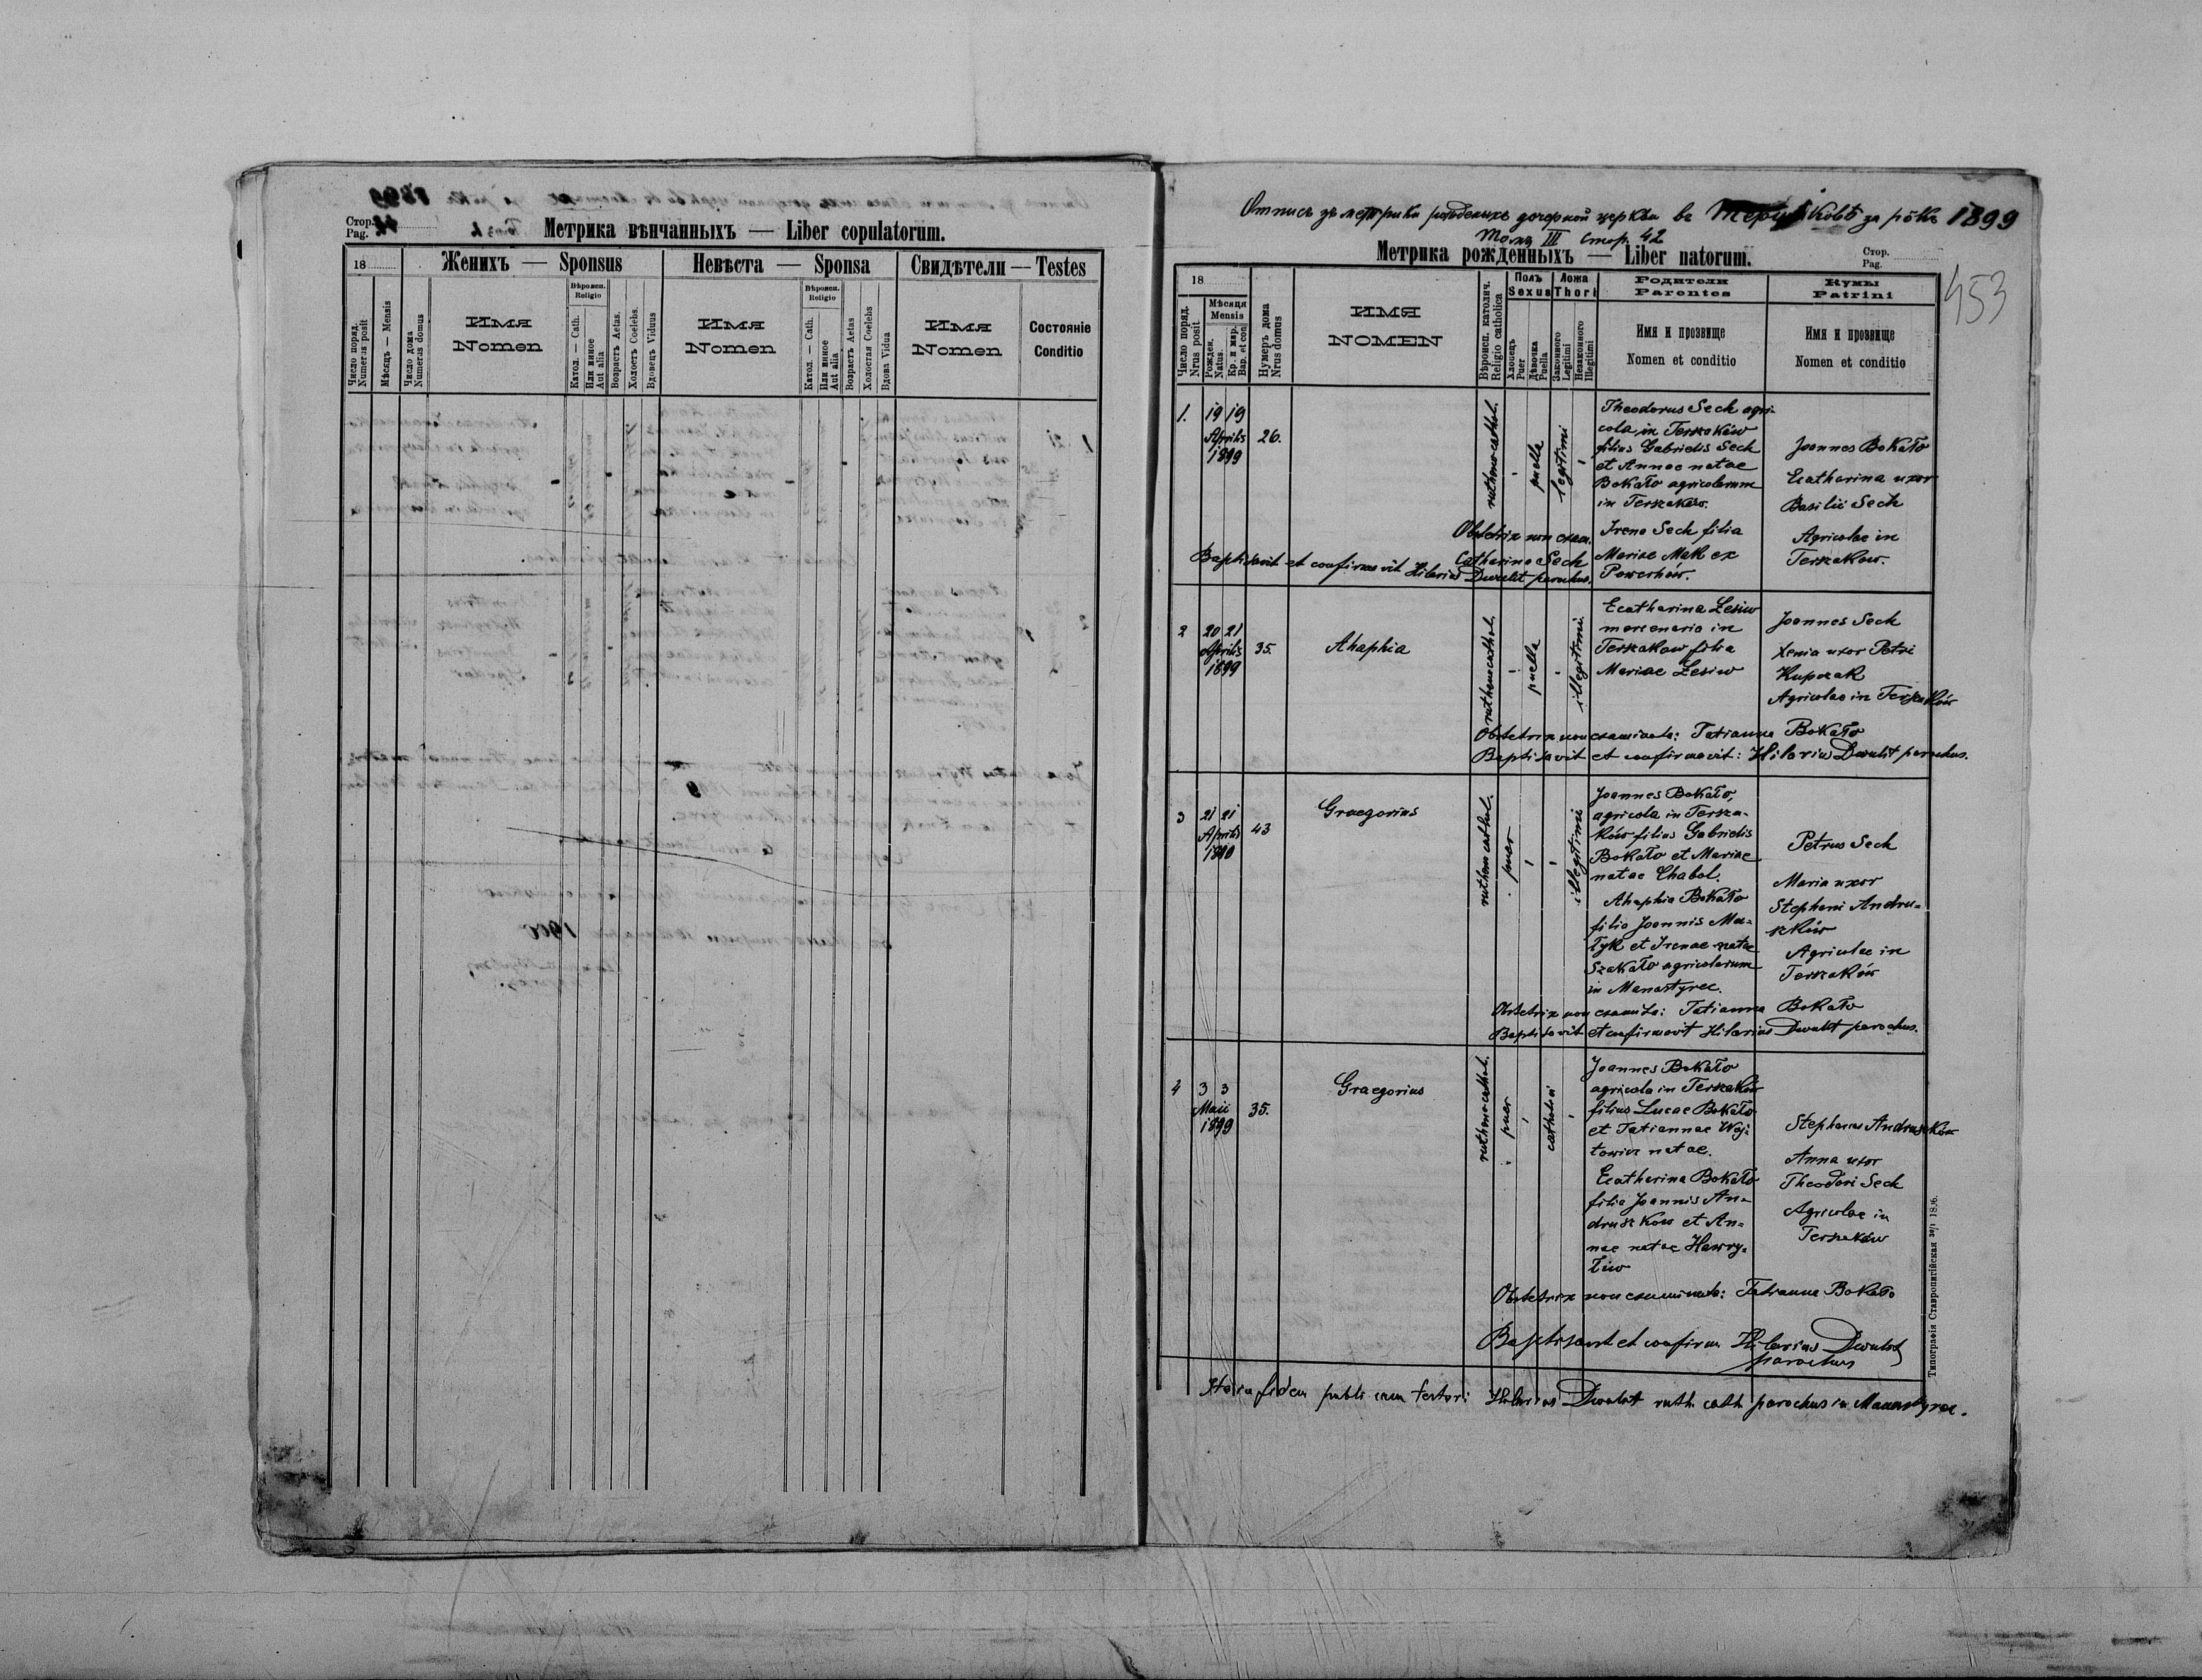 Стор.
Pag.
Метрика вѣнчанныхъ — Liber copulatorum.
18
Женихъ — Sponsus
Невѣста — Sponsa
Свидѣтели — Testes
Число поряд.
Numerus posit
Мѣсяцъ — Mensis
Число дома
Numerus domus
Имя
Nomen
Вѣроисп.
Religio
Катол. — Cath.
Или инное
Aut alia
Возрастъ Aetas.
Холостъ Coelebs.
Вдовецъ Viduus
Имя
Nomen
Вѣроисп.
Religio
Катол. — Cath.
Или инное
Aut alia
Возрастъ Aetas
Холостая Coelebs
Вдова Vidua
Имя
Nomen
Состояніе
Conditio
Отпись зъ метрики рожденныхъ дочерной церкви въ за рôкъ 1899
Томъ III Стор. 42
Метрика рожденныхъ — Liber natorum.
Стор.
Pag.
453
18
Число поряд.
Nrus posit
Мѣсяця
Mensis
Рожден.
Natus.
Кр. и мѵр.
Bap. et con
Нумеръ дома
Nrus domus
ИМЯ
NOMEN
Вѣроисп. католич.
Religio catholica
Полъ
Sexus
Хлопецъ
Puer
Дѣвочка
Puella
Ложа
Thori
Законного
Legitimi
Незаконного
Illegitimi
Родители
Parentes
Имя и прозвище
Nomen et conditio
Кумы
Patrini
Имя и прозвище
Nomen et conditio
1.
19 19
Aprilis
1899
26.
rutheno cathol.
puella
legitimi
Theodorus Sech agri-
cola in Terszaków
filius Gabrielis Sech
et Annae natae
Bokało agricolarum
in Terszaków.
Irena Sech filia
Mariae Mak ex
Powerhów.
Joannes Bokało
Ecatherina uxor
Basilii Sech
Agricolae in
Terszakow.
Obstetrix non exam.
Catherina Sech
Baptisavit et confirmavit Hilarius Dwulit parochus.
2
20 21
Aprilis
1899
35.
Ahaphia
ruthenocathol.
puella
illegitimi.
Ecatherina Lesiw
mercenaria in
Terszakow filia
Mariae Lesiw
Joannes Sech
Xenia uxor Petri
Kupczak
Agricolae in Terszaków
Obstetrix non examinata: Tatianna Bokało
Baptisavit et confirmavit: Hilarius Dwulit parochus.
3
21 21
Aprilis
43
Graegorius
ruthen cathol.
puer
illegitimi
Joannes Bokało,
agricola in Tersza-
ków filius Gabrielis
Bokało et Mariae
natae Chabal.
Ahaphia Bokało
filia Joannis Ma-
łyk et Irenae natae
Szakało agricolarum
in Manastyrec.
Petrus Sech
Maria uxor
Stephani Andru-
szków
Agricolae in
Terszaków
Obstetrix non examita: Tatianna Bokało
Baptisavit et confirmavit Hilarius Dwulit parochus.
4
3 3
Maii
1899
35.
Graegorius
ruthenocathol.
puer
Joannes Bokało
agricola in Terszaków
filius Lucae Bokało
et Tatiannae Woj-
towicz natae.
Ecatherina Bokało
filia Joannis An-
druszkow et An-
nae natae Hawry-
liw
Stephanus Andruszków
Anna uxor
Theodori Sech
Agricolae in
Terszaków
Obstetrix non examinata: Tatianna Bokało
Baptisavit et confirm Hilarius Dwulit
parochus
fidem publicam testor: Hilarius Dwulit ruth. cath parochus in Manastyrec.
Типографія Ставропигійская зар 1896.